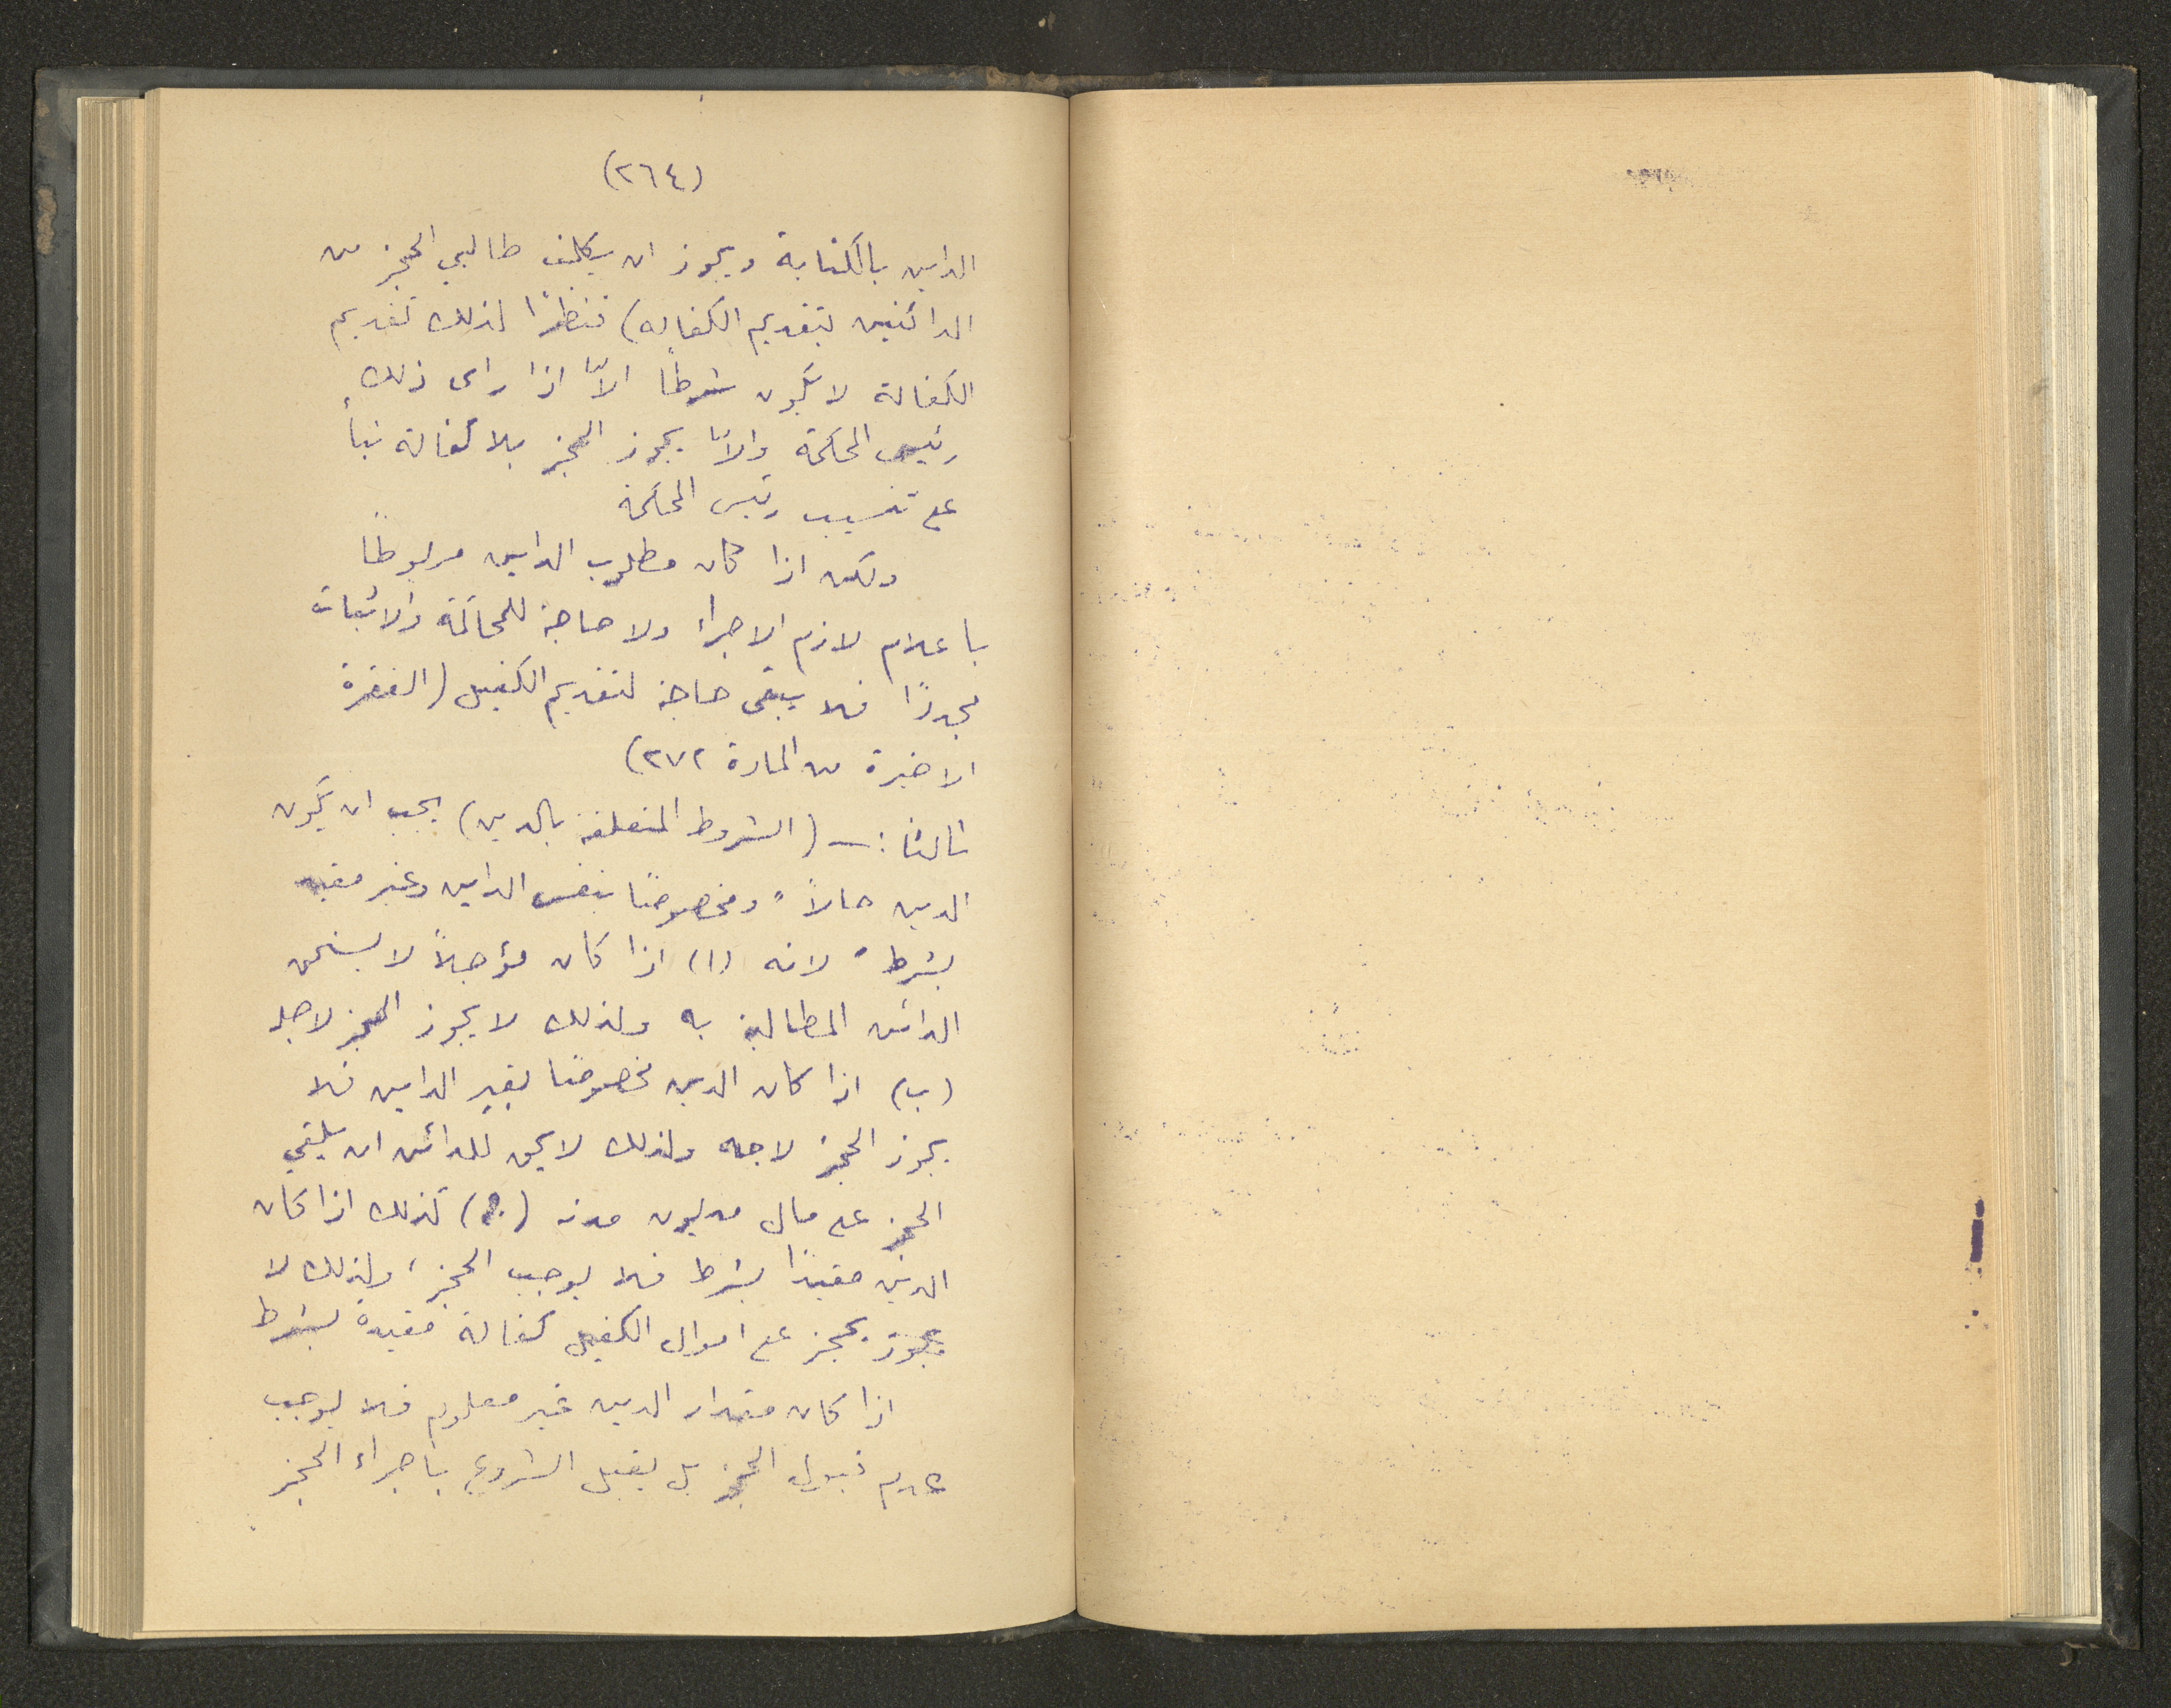 (٢٦٤)
الداين بالكتابة ويجوز ان يكلف طالبي الحجز من
الدائنين بتقديم الكفاله) فنظرًا لذلك تقديم
الكفالة لا يكون شرطاً الاّ اذا راى ذلك
رئيس المحكمة والاّ يجوز الحجز بلا كفالة بناءً
على تنسيب رئيس المحكمة
ولكن اذا كان مطلوب الداين مربوطاً
باعلام لازم الاجراء ولا حاجة للمحاكمة والاثبات
مجددًا فلا يبقى حاجة لتقديم الكفيل (الفقرة
الاخيرة من المادة ٢٧٢)
ثالثا :ـ (الشروط المتعلقة بالدين) يجب ان يكون
الدين حالاً " ومخصوصًا بنفس الداين وغير مقيد
بشرط " لانه (ا) اذا كان مؤجلاً لا يستحق
الدائن المطالبة به ولذلك لا يجوز الحجز لاجله
(ب) اذا كان الدين مخصوصًا بغير الداين فلا
يجوز الحجز لاجله ولذلك لا يحق للدائن ان يلقي
الحجز على مال مديون مدينه (ج) كذلك اذا كان
الدين مقيدًا بشرط فلا يوجب الحجز، ولذلك لا
يجوز حجز على اموال الكفيل كفالة مقيدة بشرط
اذا كان مقدار الدين غير معلوم فلا يوجب
عدم قبول الحجز بل يقبل الشروع باجراء الحجز